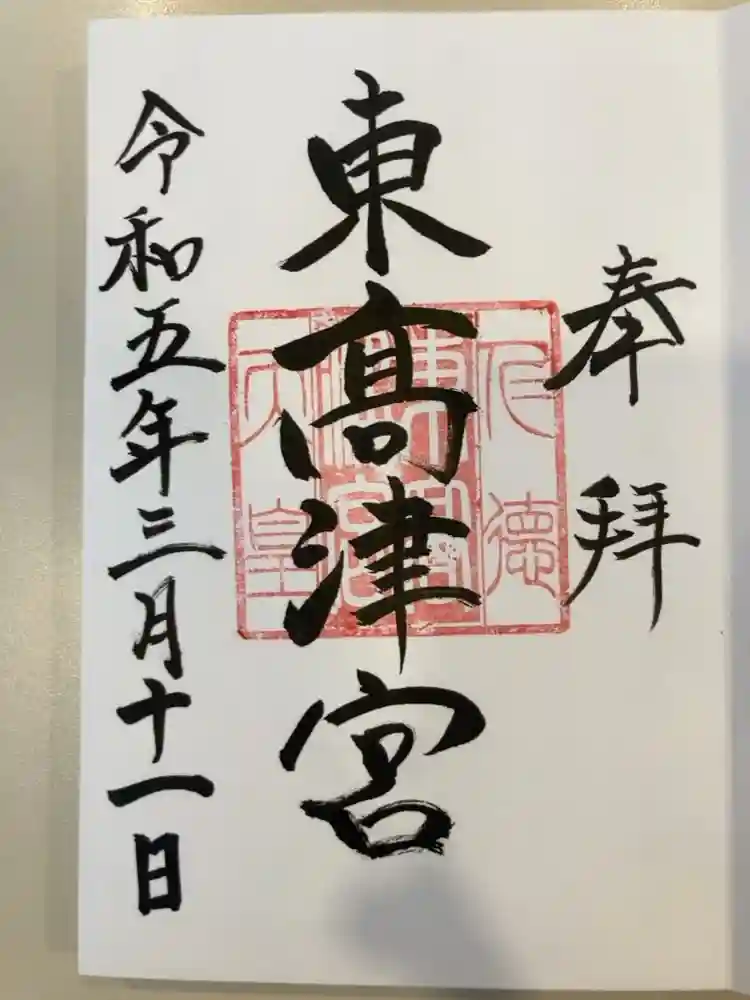 奉拝
東髙津宮
仁徳
東高
津宮
天皇
令和五年三月十一日